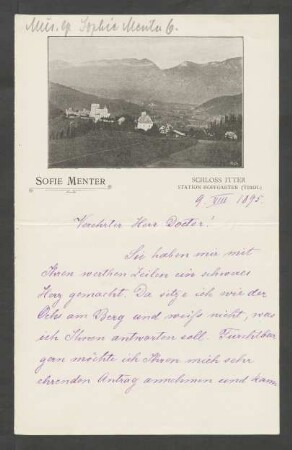 Sophie Menter
SOFIE MENTER
SCHLOSS ITTER
STATION HOPFGARTEN (TIROL)
9. VIII 1895.
Verehrter Herr Doctor!
Sie haben mir mit
Ihren werthen Zeilen ein schweres
Herz gemacht. Da sitze ich wie der
Ochs am Berg und weiß nicht, was
ich Ihnen antworten soll. Furchtbar
gern möchte ich Ihren mich sehr
ehrenden Antrag annehmen und kann